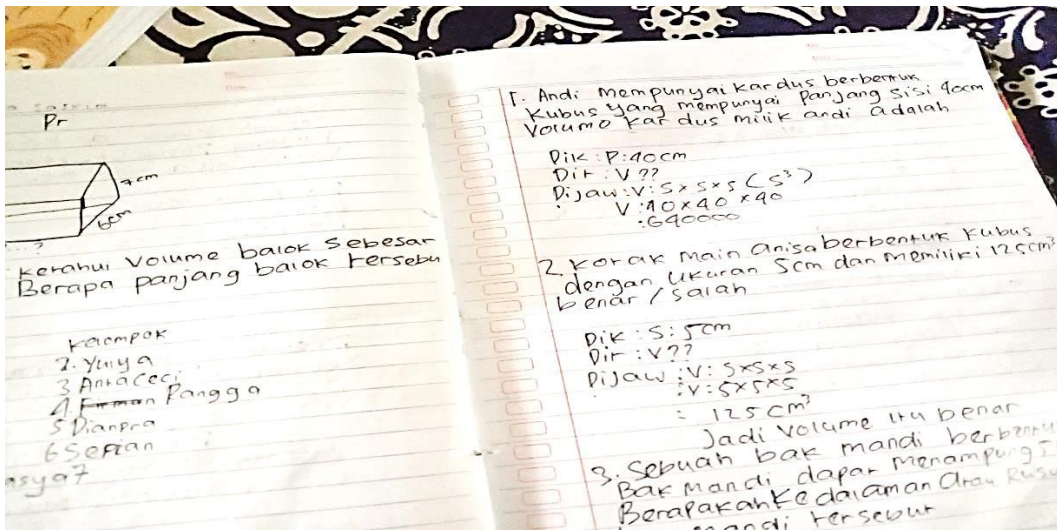 Pr
7cm
6cm
?
Ketahui Volume balok Sebesar
Berapa panjang balok tersebu
Kelompok
2. Yuiya
3 Antaceci
4. Pangga
5 Dianpra
6 Septian
asya7
1. Andi Mempunyai kardus berbentuk
Kubus yang mempunyai Panjang Sisi 40cm
Volumo kardus milik andi adalah
Dik : P : 40 cm
Dit : V ??
Dijaw : V : S x S x S (S³)
V : 40 x 40 x 40
: 640000
2. Kotak Main anisa berbentuk Kubus
dengan Ukuran 5cm dan Memiliki 125cm³
benar / salah
Dik : S : 5cm
Dit : V ??
Dijaw : V : S x S x S
: V : 5 x 5 x 5
= 125 cm³
Jadi Volume itu benar
3. Sebuah bak mandi berbentu
Bak Mandi dapat Menampung
Berapakah Kedalaman atau Rusu
mandi tersebut